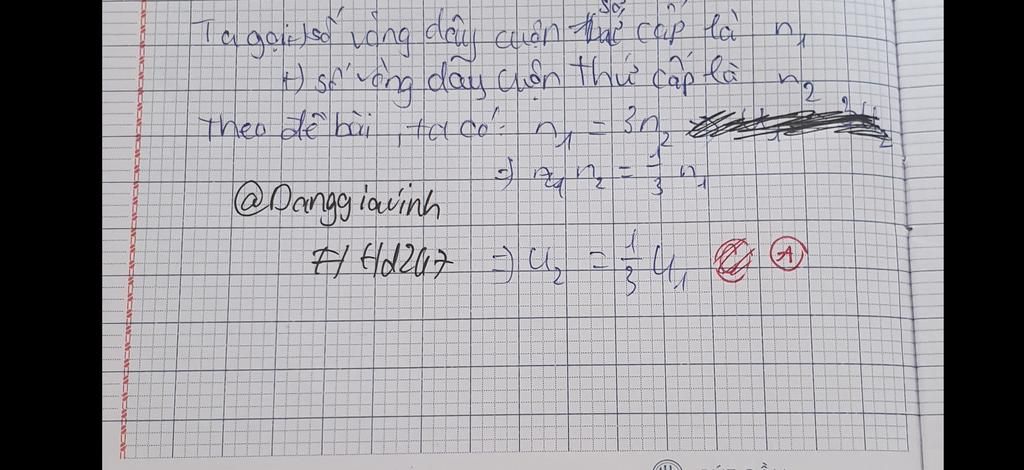 Ta gọi: +) số vòng dây cuộn sơ cấp là n₁
+) số vòng dây cuộn thứ cấp là n₂
Theo đề bài, ta có: n₁ = 3n₂
=) n₂ = 1/3 n₁
@Danggiavinh
=) U₂ = 1/3 U₁ A